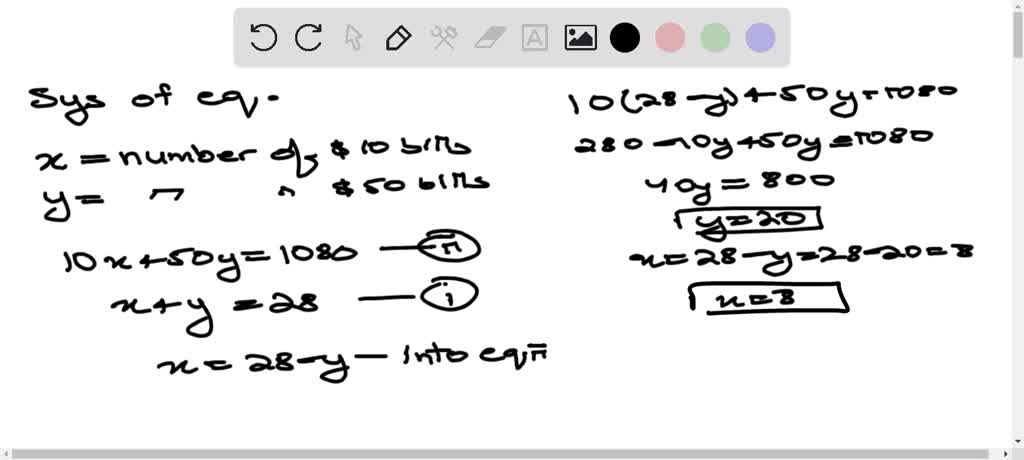 Sys of eq.
x = number of $10 bills
y = " " $50 bills
10x+50y=1080 — ii
x+y=28 — i
x=28-y — into eq ii
10(28-y)+50y=1080
280-10y+50y=1080
40y=800
y=20
x=28-y=28-20=8
x=8